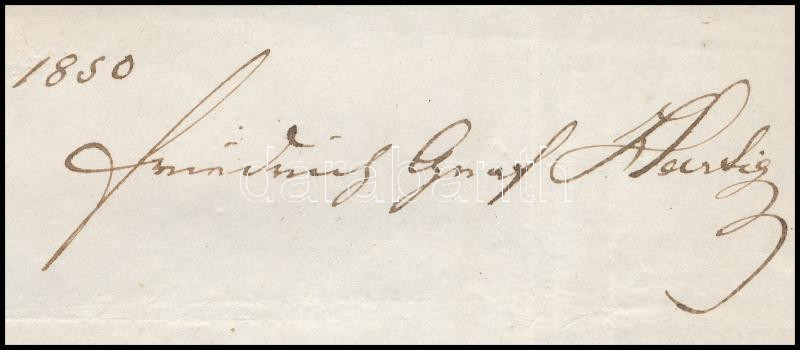 1850
Friedrich Graf Hartig
darabanth